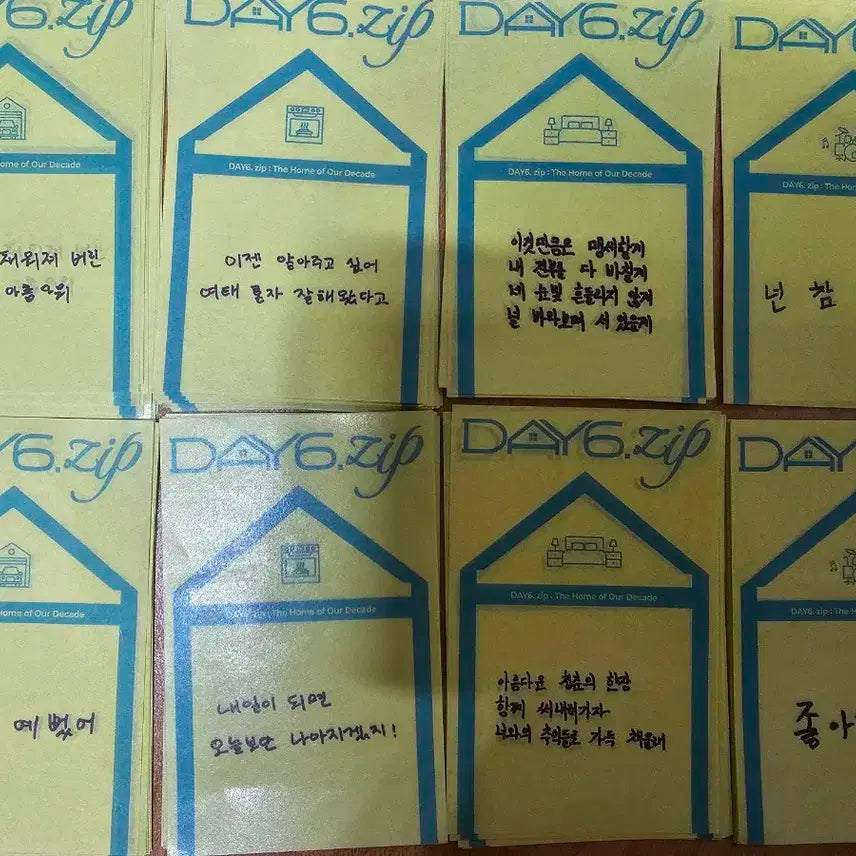 DAY6.zip
DAY6.zip
DAY6
ome of Our Decade
DAY6. zip : The Home of Our Decade
DAY6. zip : The Home of Our Decade
DAY6. zip : The Ho
버린
아름다워
이젠 알아주고 싶어
여태 혼자 잘해왔다고
이것만큼은 맹세할게
내 전부를 다 바칠게
네 눈빛 흔들리지 않게
널 바라보며 서 있을게
넌 참
Y6.zip
DAY6.zip
DAY6.zip
DAY
ome of Our Decade
DAY6. zip : The Home of Our Decade
DAY6. zip : The Home of Our Decade
DAY6. zip : The Ho
예뻤어
내일이 되면
오늘보단 나아지겠지!
아름다운 청춘의 한장
함께 써내려가자
너와의 추억들로 가득 채울래
좋아